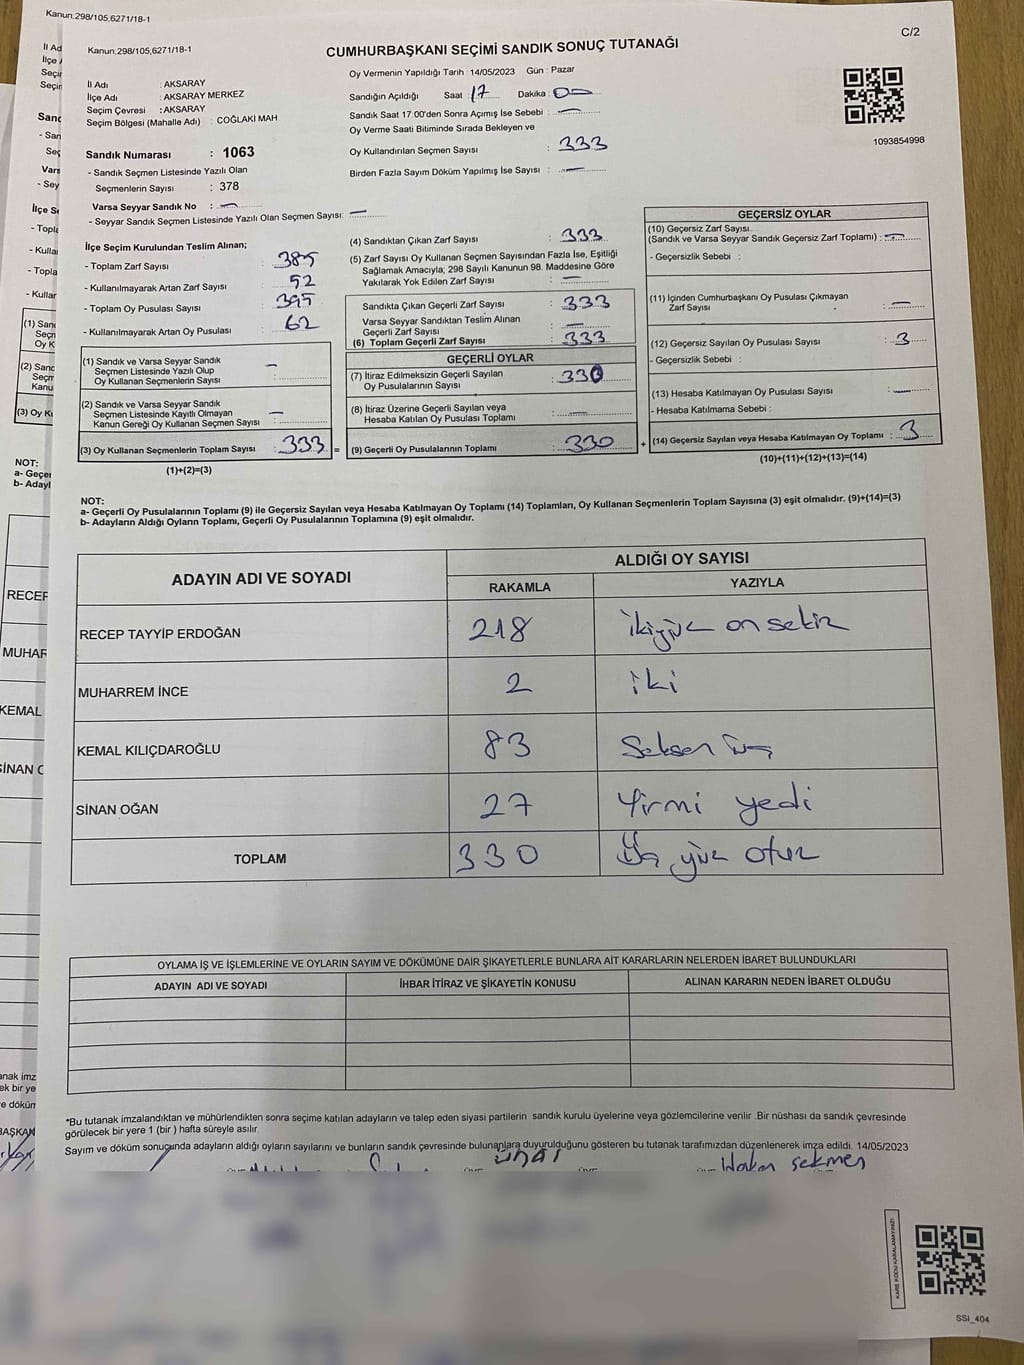 Kanun;298/105,6271/18-1
Kanun;298/105,6271/18-1
C/2
CUMHURBAŞKANI SEÇİMİ SANDIK SONUÇ TUTANAĞI
İl Adı : AKSARAY
İlçe Adı : AKSARAY MERKEZ
Seçim Çevresi : AKSARAY
Seçim Bölgesi (Mahalle Adı) : COĞLAKİ MAH.
Sandık Numarası : 1063
- Sandık Seçmen Listesinde Yazılı Olan
Seçmenlerin Sayısı : 378
Varsa Seyyar Sandık No : —
- Seyyar Sandık Seçmen Listesinde Yazılı Olan Seçmen Sayısı: —
Oy Vermenin Yapıldığı Tarih : 14/05/2023 Gün : Pazar
Sandığın Açıldığı Saat : 17 Dakika : 00
Sandık Saat 17:00'den Sonra Açımış İse Sebebi : —
Oy Verme Saati Bitiminde Sırada Bekleyen ve
Oy Kullandırılan Seçmen Sayısı : 333
Birden Fazla Sayım Döküm Yapılmış İse Sayısı : —
1093854998
İlçe Seçim Kurulundan Teslim Alınan;
- Toplam Zarf Sayısı : 385
- Kullanılmayarak Artan Zarf Sayısı : 52
- Toplam Oy Pusulası Sayısı : 395
- Kullanılmayarak Artan Oy Pusulası : 62
(1) Sandık ve Varsa Seyyar Sandık
Seçmen Listesinde Yazılı Olup
Oy Kullanan Seçmenlerin Sayısı : —
(2) Sandık ve Varsa Seyyar Sandık
Seçmen Listesinde Kayıtlı Olmayan
Kanun Gereği Oy Kullanan Seçmen Sayısı : —
(3) Oy Kullanan Seçmenlerin Toplam Sayısı : 333 =
(1)+(2)=(3)
(4) Sandıktan Çıkan Zarf Sayısı : 333
(5) Zarf Sayısı Oy Kullanan Seçmen Sayısından Fazla İse, Eşitliği
Sağlamak Amacıyla; 298 Sayılı Kanunun 98. Maddesine Göre
Yakılarak Yok Edilen Zarf Sayısı : —
Sandıkta Çıkan Geçerli Zarf Sayısı : 333
Varsa Seyyar Sandıktan Teslim Alınan
Geçerli Zarf Sayısı : —
(6) Toplam Geçerli Zarf Sayısı : 333
GEÇERLİ OYLAR
(7) İtiraz Edilmeksizin Geçerli Sayılan
Oy Pusulalarının Sayısı : 330
(8) İtiraz Üzerine Geçerli Sayılan veya
Hesaba Katılan Oy Pusulası Toplamı : —
(9) Geçerli Oy Pusulalarının Toplamı : 330 +
GEÇERSİZ OYLAR
(10) Geçersiz Zarf Sayısı
(Sandık ve Varsa Seyyar Sandık Geçersiz Zarf Toplamı) : —
- Geçersizlik Sebebi :
(11) İçinden Cumhurbaşkanı Oy Pusulası Çıkmayan
Zarf Sayısı : —
(12) Geçersiz Sayılan Oy Pusulası Sayısı : 3
- Geçersizlik Sebebi :
(13) Hesaba Katılmayan Oy Pusulası Sayısı : —
- Hesaba Katılmama Sebebi :
(14) Geçersiz Sayılan veya Hesaba Katılmayan Oy Toplamı : 3
(10)+(11)+(12)+(13)=(14)
NOT:
a- Geçerli Oy Pusulalarının Toplamı (9) ile Geçersiz Sayılan veya Hesaba Katılmayan Oy Toplamı (14) Toplamları, Oy Kullanan Seçmenlerin Toplam Sayısına (3) eşit olmalıdır. (9)+(14)=(3)
b- Adayların Aldığı Oyların Toplamı, Geçerli Oy Pusulalarının Toplamına (9) eşit olmalıdır.
ADAYIN ADI VE SOYADI
ALDIĞI OY SAYISI
RAKAMLA YAZIYLA
RECEP TAYYİP ERDOĞAN 218 ikiyüz on sekiz
MUHARREM İNCE 2 iki
KEMAL KILIÇDAROĞLU 83 Seksen üç
SİNAN OĞAN 27 Yirmi yedi
TOPLAM 330 Üç yüz otuz
OYLAMA İŞ VE İŞLEMLERİNE VE OYLARIN SAYIM VE DÖKÜMÜNE DAİR ŞİKAYETLERLE BUNLARA AİT KARARLARIN NELERDEN İBARET BULUNDUKLARI
ADAYIN ADI VE SOYADI İHBAR İTİRAZ VE ŞİKAYETİN KONUSU ALINAN KARARIN NEDEN İBARET OLDUĞU
*Bu tutanak imzalandıktan ve mühürlendikten sonra seçime katılan adayların ve talep eden siyasi partilerin sandık kurulu üyelerine veya gözlemcilerine verilir .Bir nüshası da sandık çevresinde
görülecek bir yere 1 (bir ) hafta süreyle asılır.
Sayım ve döküm sonuçunda adayların aldığı oyların sayılarını ve bunların sandık çevresinde bulunanlara duyurulduğunu gösteren bu tutanak tarafımızdan düzenlenerek imza edildi. 14/05/2023
ünal
Hakan sekmen
KARE KODU KARALAMAYINIZ!
SSI_404